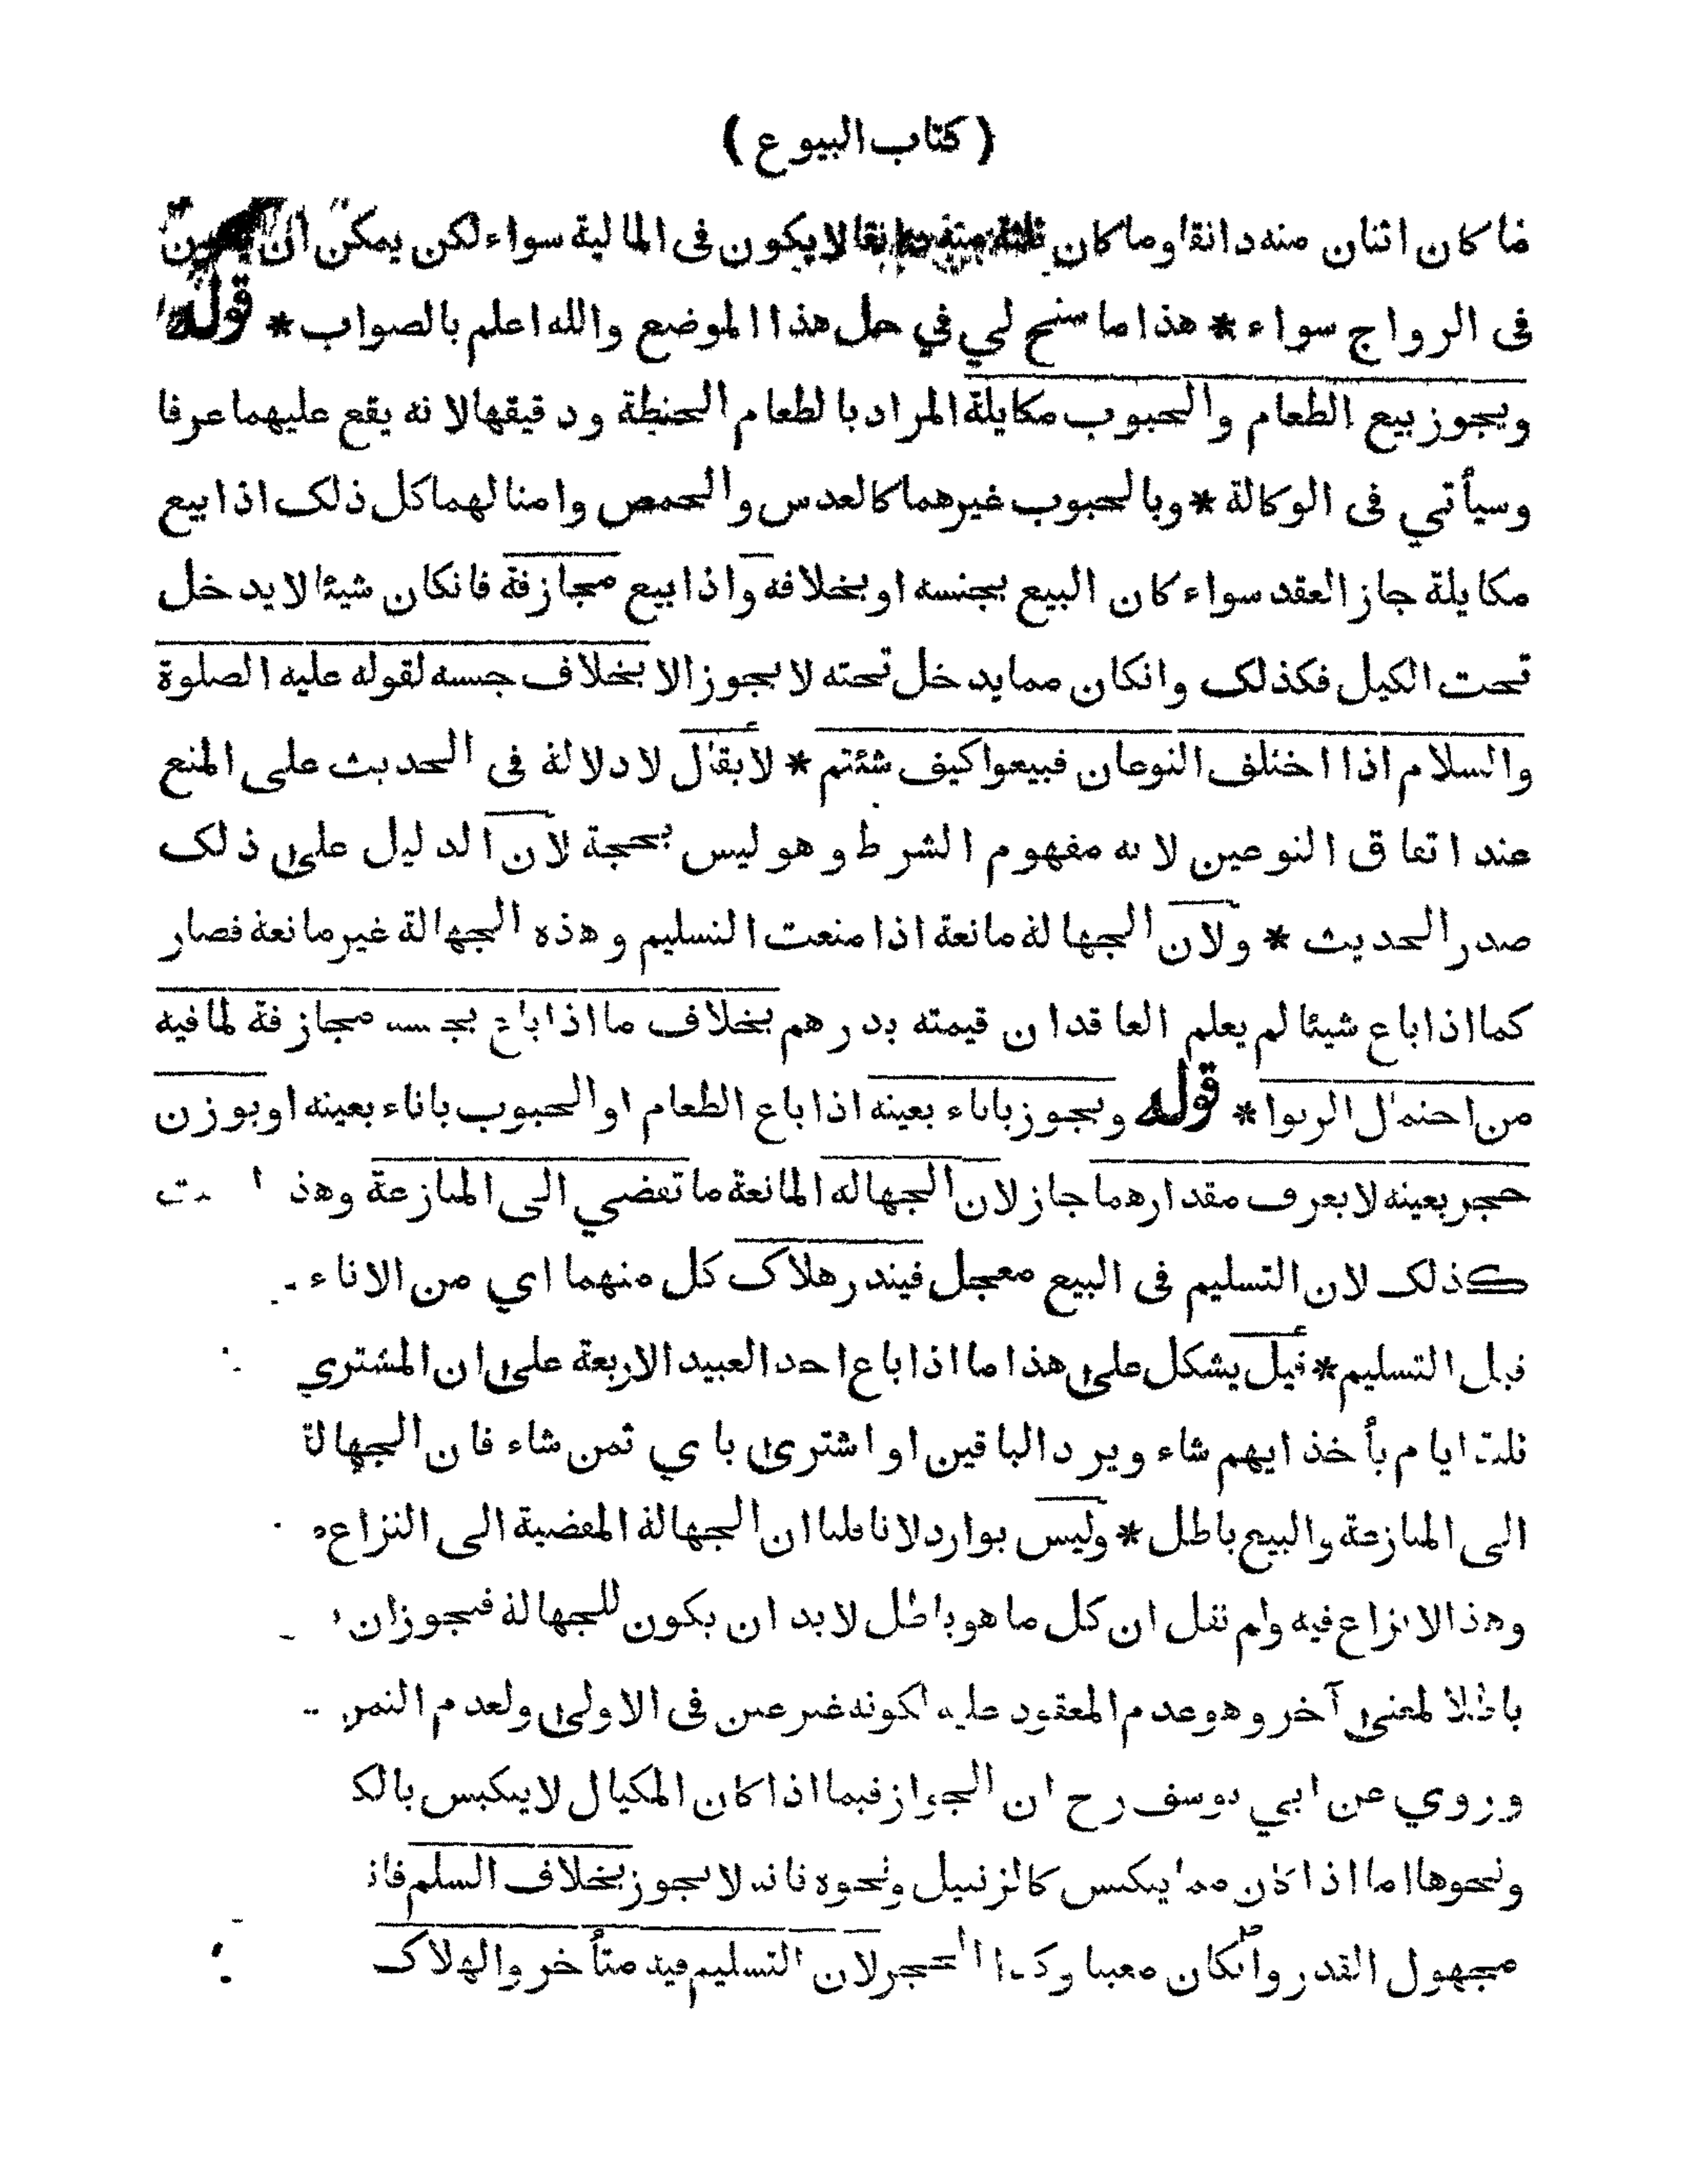 ( كتاب البيوع )
فما كان اثنان منه دانقا وما كان ثلثة منه دانقا لا يكون فى المالية سواء لكن يمكن ان يكون
فى الرواج سواء * هذا ما سنح لي في حل هذا الموضع والله اعلم بالصواب * قوله
ويجوز بيع الطعام والحبوب مكايلة المراد بالطعام الحنطة ودقيقها لانه يقع عليهما عرفا
وسيأتي فى الوكالة * وبالحبوب غيرهما كالعدس والحمص وامثالهما كل ذلك اذا بيع
مكايلة جاز العقد سواء كان البيع بجنسه او بخلافه واذا بيع مجازفة فانكان شيئا لا يدخل
تحت الكيل فكذلك وانكان مما يدخل تحته لا يجوز الا بخلاف جنسه لقوله عليه الصلوة
والسلام اذا اختلف النوعان فبيعوا كيف شئتم * لا يقال لا دلالة فى الحديث على المنع
عند اتفاق النوعين لانه مفهوم الشرط وهو ليس بحجة لان الدليل على ذلك
صدر الحديث * ولان الجهالة مانعة اذا منعت التسليم وهذه الجهالة غير مانعة فصار
كما اذا باع شيئا لم يعلم العاقدان قيمته بدرهم بخلاف ما اذا باع بجنسه مجازفة لما فيه
من احتمال الربوا * قوله ويجوز باناء بعينه اذا باع الطعام او الحبوب باناء بعينه او بوزن
حجر بعينه لا يعرف مقدارهما جاز لان الجهالة المانعة ما تفضي الى المنازعة وهذ
كذلك لان التسليم فى البيع معجل فيندر هلاك كل منهما اي من الاناء
قبل التسليم * قيل يشكل على هذا ما اذا باع احد العبيد الاربعة على ان المشتري
ثلثة ايام يأخذ ايهم شاء ويرد الباقين او اشترى باي ثمن شاء فان الجهالة
الى المنازعة والبيع باطل * وليس بوارد لانا قلنا ان الجهالة المفضية الى النزاع
وهذا لا نزاع فيه ولم نقل ان كل ما هو باطل لا بد ان يكون للجهالة فيجوز ان
باطلا لمعنى آخر وهو عدم المعقود عليه لكونه غير عين فى الاولى ولعدم الثمن
وروي عن ابي يوسف رح ان الجواز فيما اذا كان المكيال لا ينكبس بالك
ونحوها اما اذا كان مما ينكبس كالزنبيل ونحوه فانه لا يجوز بخلاف السلم فان
مجهول القدر وان كان معينا وكذا الحجر لان التسليم فيه متأخر والهلاك